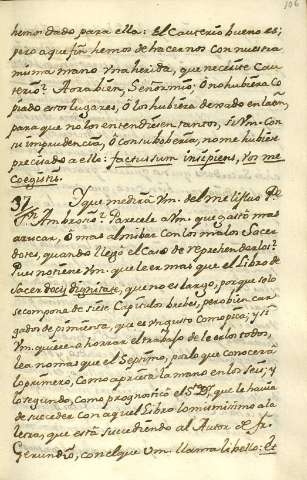 106
hemos dado para ella: El Cauterio bueno es;
pero a que fin hemos de hacernos con nuestra
misma mano vna herida, que necesite Cau-
terio? Aora bien, Señor mio; ô no hubiera Co-
piado estos lugares, ô los hubiera dexado en latin,
para que no los entendiesen tantos, si Vm. con
su imprudencia, ô con su boberia, no me hubiese
precisado a ello: factus sum insipiens, vos me
coegistis.
37 Y que me dirà Vm. del melifluo Pe
Sn. Ambrosio? Parecele a Vm. que gastó mas
azucar, ô mas almibar con los malos Sacer
dotes, quando llegó el Caso de reprehenderlos?
Pues no tiene Vm. que leer mas que el Libro de
Sacerdocii dignitate, que no es largo, porque solo
se compone de siete Capitulos brebes, pero bien car
gados de pimienta, que es vn gusto como pica; y si
Vm. quiere ahorrar el trabajo de leerlos todos,
lea no mas que el Septimo, por lo que conocerà
lo primero, como aprieta la mano en los seis; y
lo segundo, como prognosticó el Sto. Dr. que le havia
de suceder con aquel Libro lo mismisimo a la
letra, que está sucediendo al Autor de Fr.
Gerundio, con el que Vm. llama libelo: Et